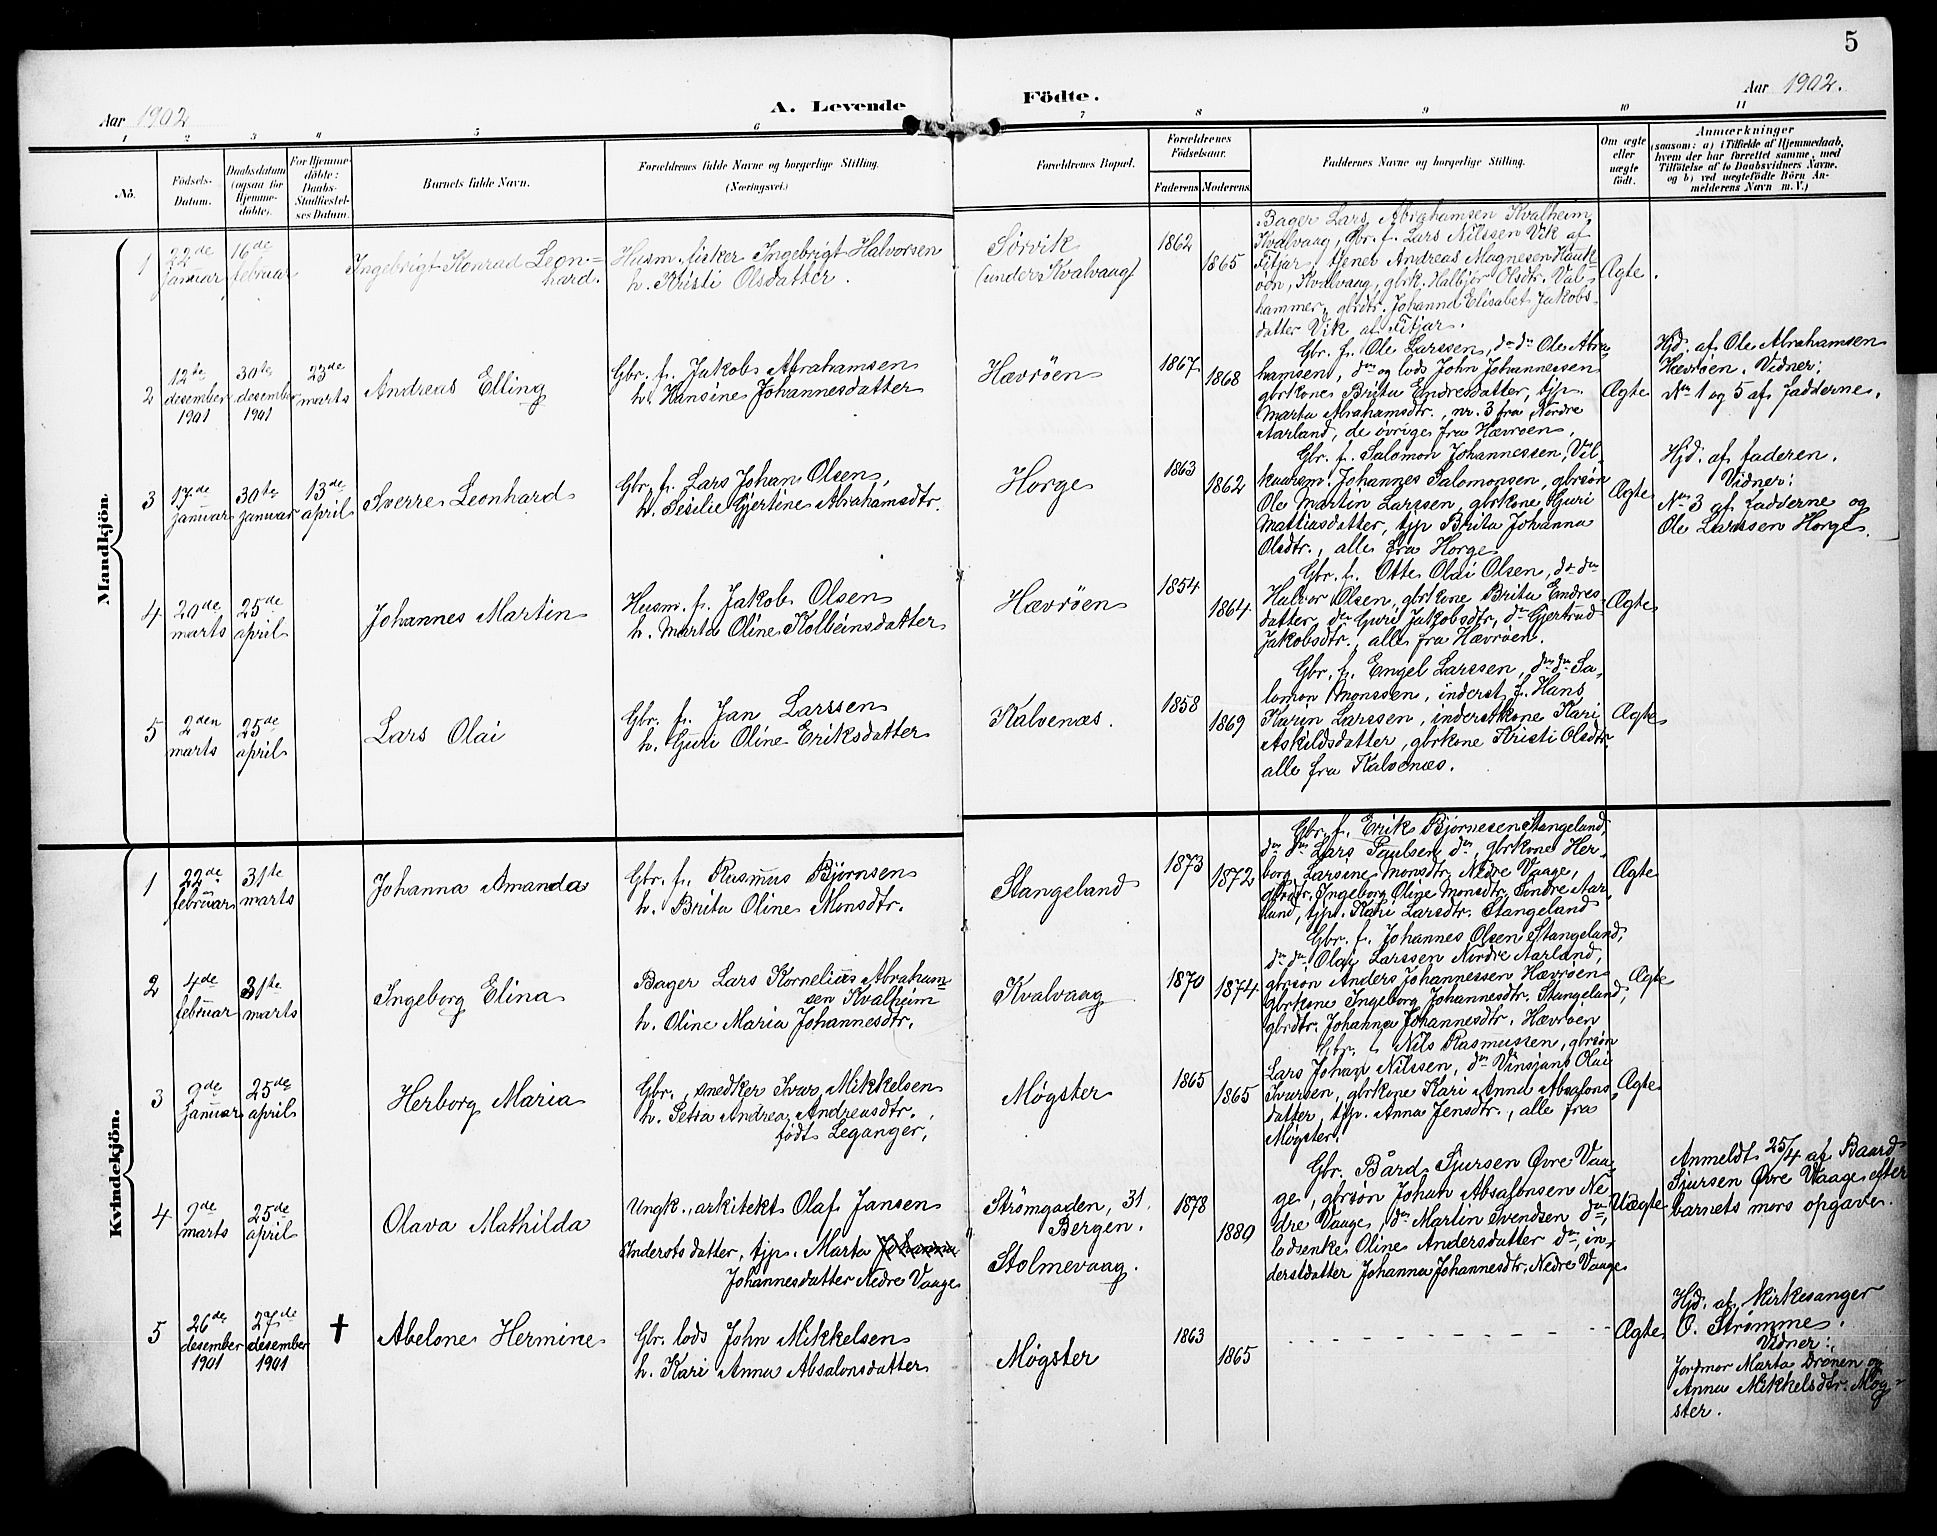 5
Aar 1902
A. Levende Födte.
Aar 1902.
1 2 3 4 5 6 7 8 9 10 11
No.
Födsels-
Datum.
Daabsdatum
(ogsaa for
Hjemme-
döbte).
For Hjemme-
döbte:
Daabs-
Stadfæstel-
ses Datum.
Barnets fulde Navn.
Forældrenes fulde Navne og borgerlige Stilling.
(Næringsvei.)
Forældrenes Bopæl.
Forældrenes
Födselsaar.
Faderens Moderens
Faddernes Navne og borgerlige Stilling.
Om ægte
eller
uægte
födt.
Anmærkninger
(saasom: a) i Tilfælde af Hjemmedaab,
hvem der har forrettet samme, med
Tilföielse af to Daabsvidners Navne.
og b) ved uægtefödte Börn An-
melderens Navn m. V.)
Mandkjön.
1
22de
januar
16de
februar
Ingebrigt Konrad Leon=
hard.
Husm. fisker Ingebrigt Halvorsen
h. Kristi Olsdatter.
Sørvik
(under Kvalvaag)
1862
1865
Bager Lars Abrahamsen Kvalheim,
Kvalvaag, Gbr. f. Lars Nilssen Vik af
Fitjar, tjener Andreas Magnesen Hauk-
øen, Kvalvaag, gbrk. Halbjør Olsdtr. Val-
hammer, gbrdtr. Johanna Elisabet Jakobs-
datter Vik af Fitjar.
Ægte
2
12te
desember
1901
30te
desember
1901
23de
marts
Andreas Elling
Gbr. f. Jakob Abrahamsen
h. Hansine Johannesdatter
Hævrøen
1867
1868
Gbr. f. Ole Larssen, do do Ole Abra-
hamsen, do og lods John Johannessen
gbrkone Brita Endresdatter, tjp.
Marta Abrahamsdtr., nr. 3 fra Nordre
Aarland, de øvrige fra Hævrøen.
Ægte
Hjd. af Ole Abrahamsen
Hævrøen. Vidner:
No 1 og 5 af fadderne.
3
17de
januar
30te
januar
13de
april
Sverre Leonhard
Gbr. f. Lars Johan Olsen,
h. Sesilie Gjertine Abrahamsdtr.
Horge
1863
1862
Gbr. f. Salomon Johannessen, Vil-
kaarsm. Johannes Salomonsen, gbrsøn
Ole Martin Larssen, gbrkone Guri
Mattiasdatter, tjp Brita Johanna
Olsdtr., alle fra Horge
Ægte
Hjd. af faderen.
Vidner:
No 3 af fadderne og
Ole Larssen Horge.
4
20de
marts
25de
april
Johannes Martin
Husm. f. Jakob Olsen
h. Marta Oline Kolbeinsdatter
Hævrøen
1854
1864
Gbr. f. Otte Olai Olsen, do do
Halvor Olsen, gbrkone Brita Endres
datter, do Guri Jakobsdtr, do Gjertrud
Jakobsdtr., alle fra Hævrøen.
Ægte
5
2den
marts
25de
april
Lars Olai
Gbr. f. Jan Larssen
h. Guri Oline Eriksdatter
Kalvenæs.
1858
1869
Gbr. f. Engel Larssen, do do Sa-
lomon Monssen, inderst f. Hans
Karin Larssen, inderstkone Kari
Askildsdatter, gbrkone Kristi Olsdtr
alle fra Kalvenæs.
Ægte
Kvindekjön.
1
22de
februar
31te
marts
Johanna Amanda
Gbr. f. Rasmus Bjørnsen
h. Brita Oline Monsdtr.
Stangeland
1873
1872
Gbr. f. Erik Bjørnesen Stangeland,
do do Lars Paulsen do, gbrkone Her-
borg Larsine Monsdtr. Nedre Vaage,
gbrdtr. Ingeborg Oline Monsdtr. Søndre Aar-
land, tjp. Kari Larsdtr. Stangeland
Ægte
2
4de
februar
31te
marts
Ingeborg Elina
Bager Lars Kornelius Abraham-
sen Kvalheim
h. Oline Maria Johannesdtr.
Kvalvaag
1870
1874
Gbr. f. Johannes Olsen Stangeland,
do do Olai Larssen Nordre Aarland,
gbrsøn Anders Johannessen Hævrøen
Gbrkone Ingeborg Johannesdtr. Stangeland,
gbrdtr. Johanna Johannesdtr. Hævrøen
Ægte
3
9de
januar
25de
april
Herborg Maria
Gbr., snedker Ivar Mikkelsen
h. Petra Andrea Andreasdtr.
født Leganger,
Møgster
1865
1865
Gbr. f. Nils Rasmussen, gbrsøn
Lars Johan Nilssen, do Vinsjans Olai
Ivarsen, gbrkone Kari Anna Absalons
datter, tjp. Anna Jensdtr., alle fra
Møgster.
Ægte
4
9de
marts
25de
april
Olava Mathilda
Ungk., arkitekt Olaf Jansen
Inderstsdatter, tjp. Marta Johanna
Johannesdatter Nedre Vaage
Strømgaden, 31.
Bergen.
Stolmevaag.
1878
1880
Gbr. Bård Sjursen Øvre Vaa-
ge, gbrsøn Johan Absalonsen Ne-
dre Vaage, do Martin Svendsen do,
lodsenke Oline Andersdatter do, in-
derstdatter Johanna Johannesdtr. Nedre Vaage
Uægte
Anmeldt 25/4 af Baard
Sjursen Øvre Vaage efter
barnets mors opgave.
5
26de
desember
1901
27de
desember
1901
†
Abelone Hermine
Gbr. lods John Mikkelsen
h. Kari Anna Absalonsdatter
Møgster
1863
1865
Ægte
Hjd. af kirkesanger
O. Strømme.
Vidner:
Jordmor Marta Drønen og
Anna Mikkelsdtr. Møg-
ster.